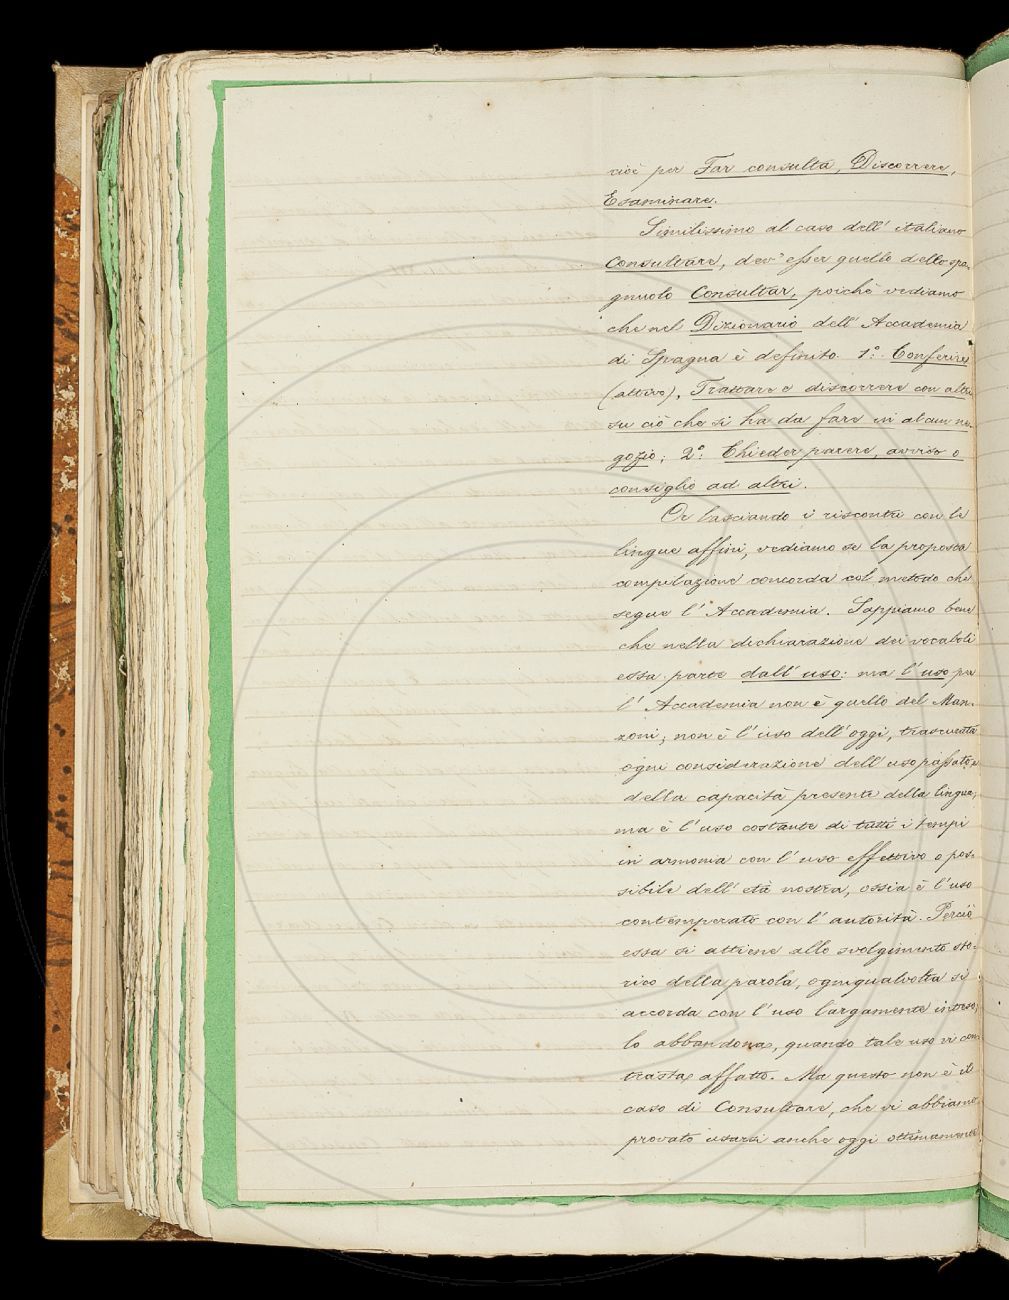 cioè per Far consulta, Discorrere,
Esaminare.
Similissimo al caso dell' italiano
Consultare, dev' esser quello dello spa-
gnuolo Consultar, poichè vediamo
che nel Dizionario dell' Accademia
di Spagna è definito 1.° Conferire
(attivo), Trattare e discorrere con altri
su ciò che si ha da fare in alcun ne-
gozio; 2.° Chieder parere, avviso o
consiglio ad altri.
Or lasciando i riscontri con le
lingue affini, vediamo se la proposta
compilazione concorda col metodo che
segue l' Accademia. Sappiamo bene
che nella dichiarazione dei vocaboli
essa parte dall' uso: ma l' uso per
l' Accademia non è quello del Man-
zoni; non è l' uso dell' oggi, trascurata
ogni considerazione dell' uso passato e
della capacità presente della lingua;
ma è l' uso costante di tutti i tempi
in armonia con l' uso effettivo o pos-
sibile dell' età nostra, ossia è l' uso
contemperato con l' autorità. Perciò
essa si attiene allo svolgimento sto-
rico della parola, ogniqualvolta si
accorda con l' uso largamente inteso;
lo abbandona, quando tale uso vi con-
trasta affatto. Ma questo non è il
caso di Consultare, che vi abbiamo
provato usarsi anche oggi ottimamente